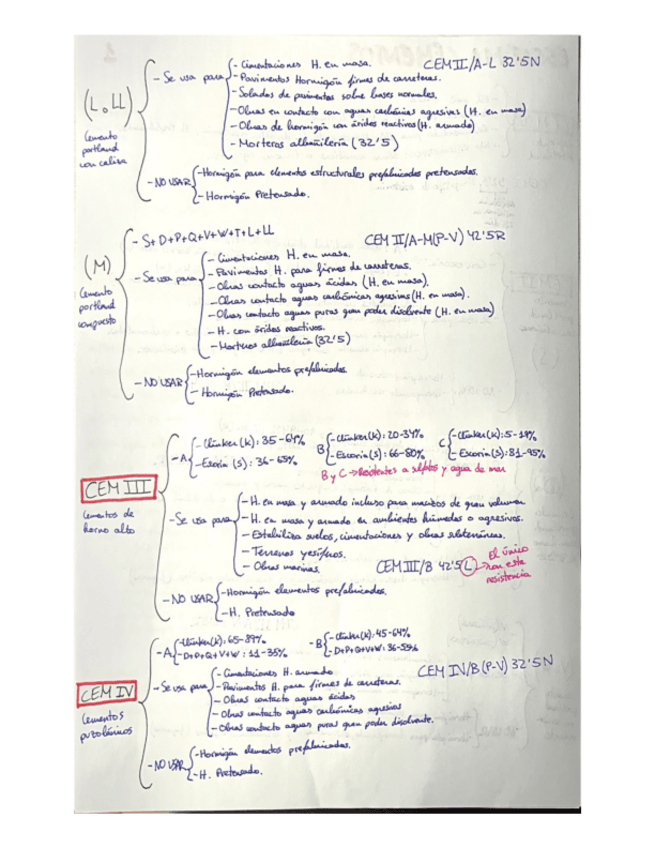 (L o LL)
Cemento
portland
con caliza
- Se usa para
- Cimentaciones H. en masa.
CEM II/A-L 32'5N
- Pavimentos Hormigón firmes de carreteras.
- Solados de pavimentos sobre bases normales.
- Obras en contacto con aguas carbónicas agresivas (H. en masa)
- Obras de hormigón con áridos reactivos (H. armado)
- Morteros albañilería (32'5)
- NO USAR
- Hormigón para elementos estructurales prefabricados pretensados.
- Hormigón Pretensado.
(M)
Cemento
portland
compuesto
- S+D+P+Q+V+W+T+L+LL
CEM II/A-M(P-V) 42'5R
- Se usa para
- Cimentaciones H. en masa.
- Pavimentos H. para firmes de carreteras.
- Obras contacto aguas ácidas (H. en masa).
- Obras contacto aguas carbónicas agresivas (H. en masa).
- Obras contacto aguas puras gran poder disolvente (H. en masa)
- H. con áridos reactivos.
- Morteros albañilería (32'5)
- NO USAR
- Hormigón elementos prefabricados
- Hormigón Pretensado.
CEM III
Cementos de
horno alto
- A
- Clinker(k): 35-64%
- Escoria (S): 36-65%
B
- Clinker(k): 20-34%
- Escoria(s): 66-80%
C
- Clinker(k): 5-19%
- Escoria(s): 81-95%
B y C → Resistentes a sulfatos y agua de mar
- Se usa para
- H. en masa y armado incluso para macizos de gran volumen
- H. en masa y armado en ambientes húmedos o agresivos.
- Estabiliza suelos, cimentaciones y obras subterráneas.
- Terrenos yesíferos.
- Obras marinas.
CEM III/B 42'5 L → El único
con esta
resistencia
- NO USAR
- Hormigón elementos prefabricados.
- H. Pretensado
CEM IV
Cementos
puzolánicos
- A
- Clinker(k): 65-89%
- D+P+Q+V+W: 11-35%
- B
- Clinker(k): 45-64%
- D+P+Q+V+W: 36-55%
CEM IV/B (P-V) 32'5N
- Se usa para
- Cimentaciones H. armado
- Pavimentos H. para firmes de carreteras.
- Obras contacto aguas ácidas
- Obras contacto aguas carbónicas agresivas
- Obras contacto aguas puras gran poder disolvente.
- NO USAR
- Hormigón elementos prefabricados.
- H. Pretensado.